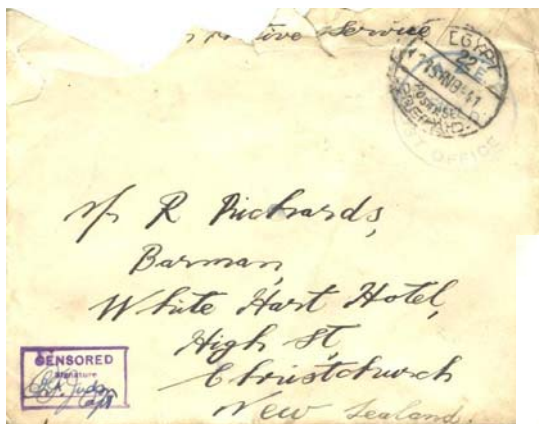 Active Service
EGYPT
22
POSTAGE
PREPAID
POST OFFICE
Mr R Richards,
Barman,
White Hart Hotel,
High St
Christchurch
New Zealand.
CENSORED
Signature
Capt